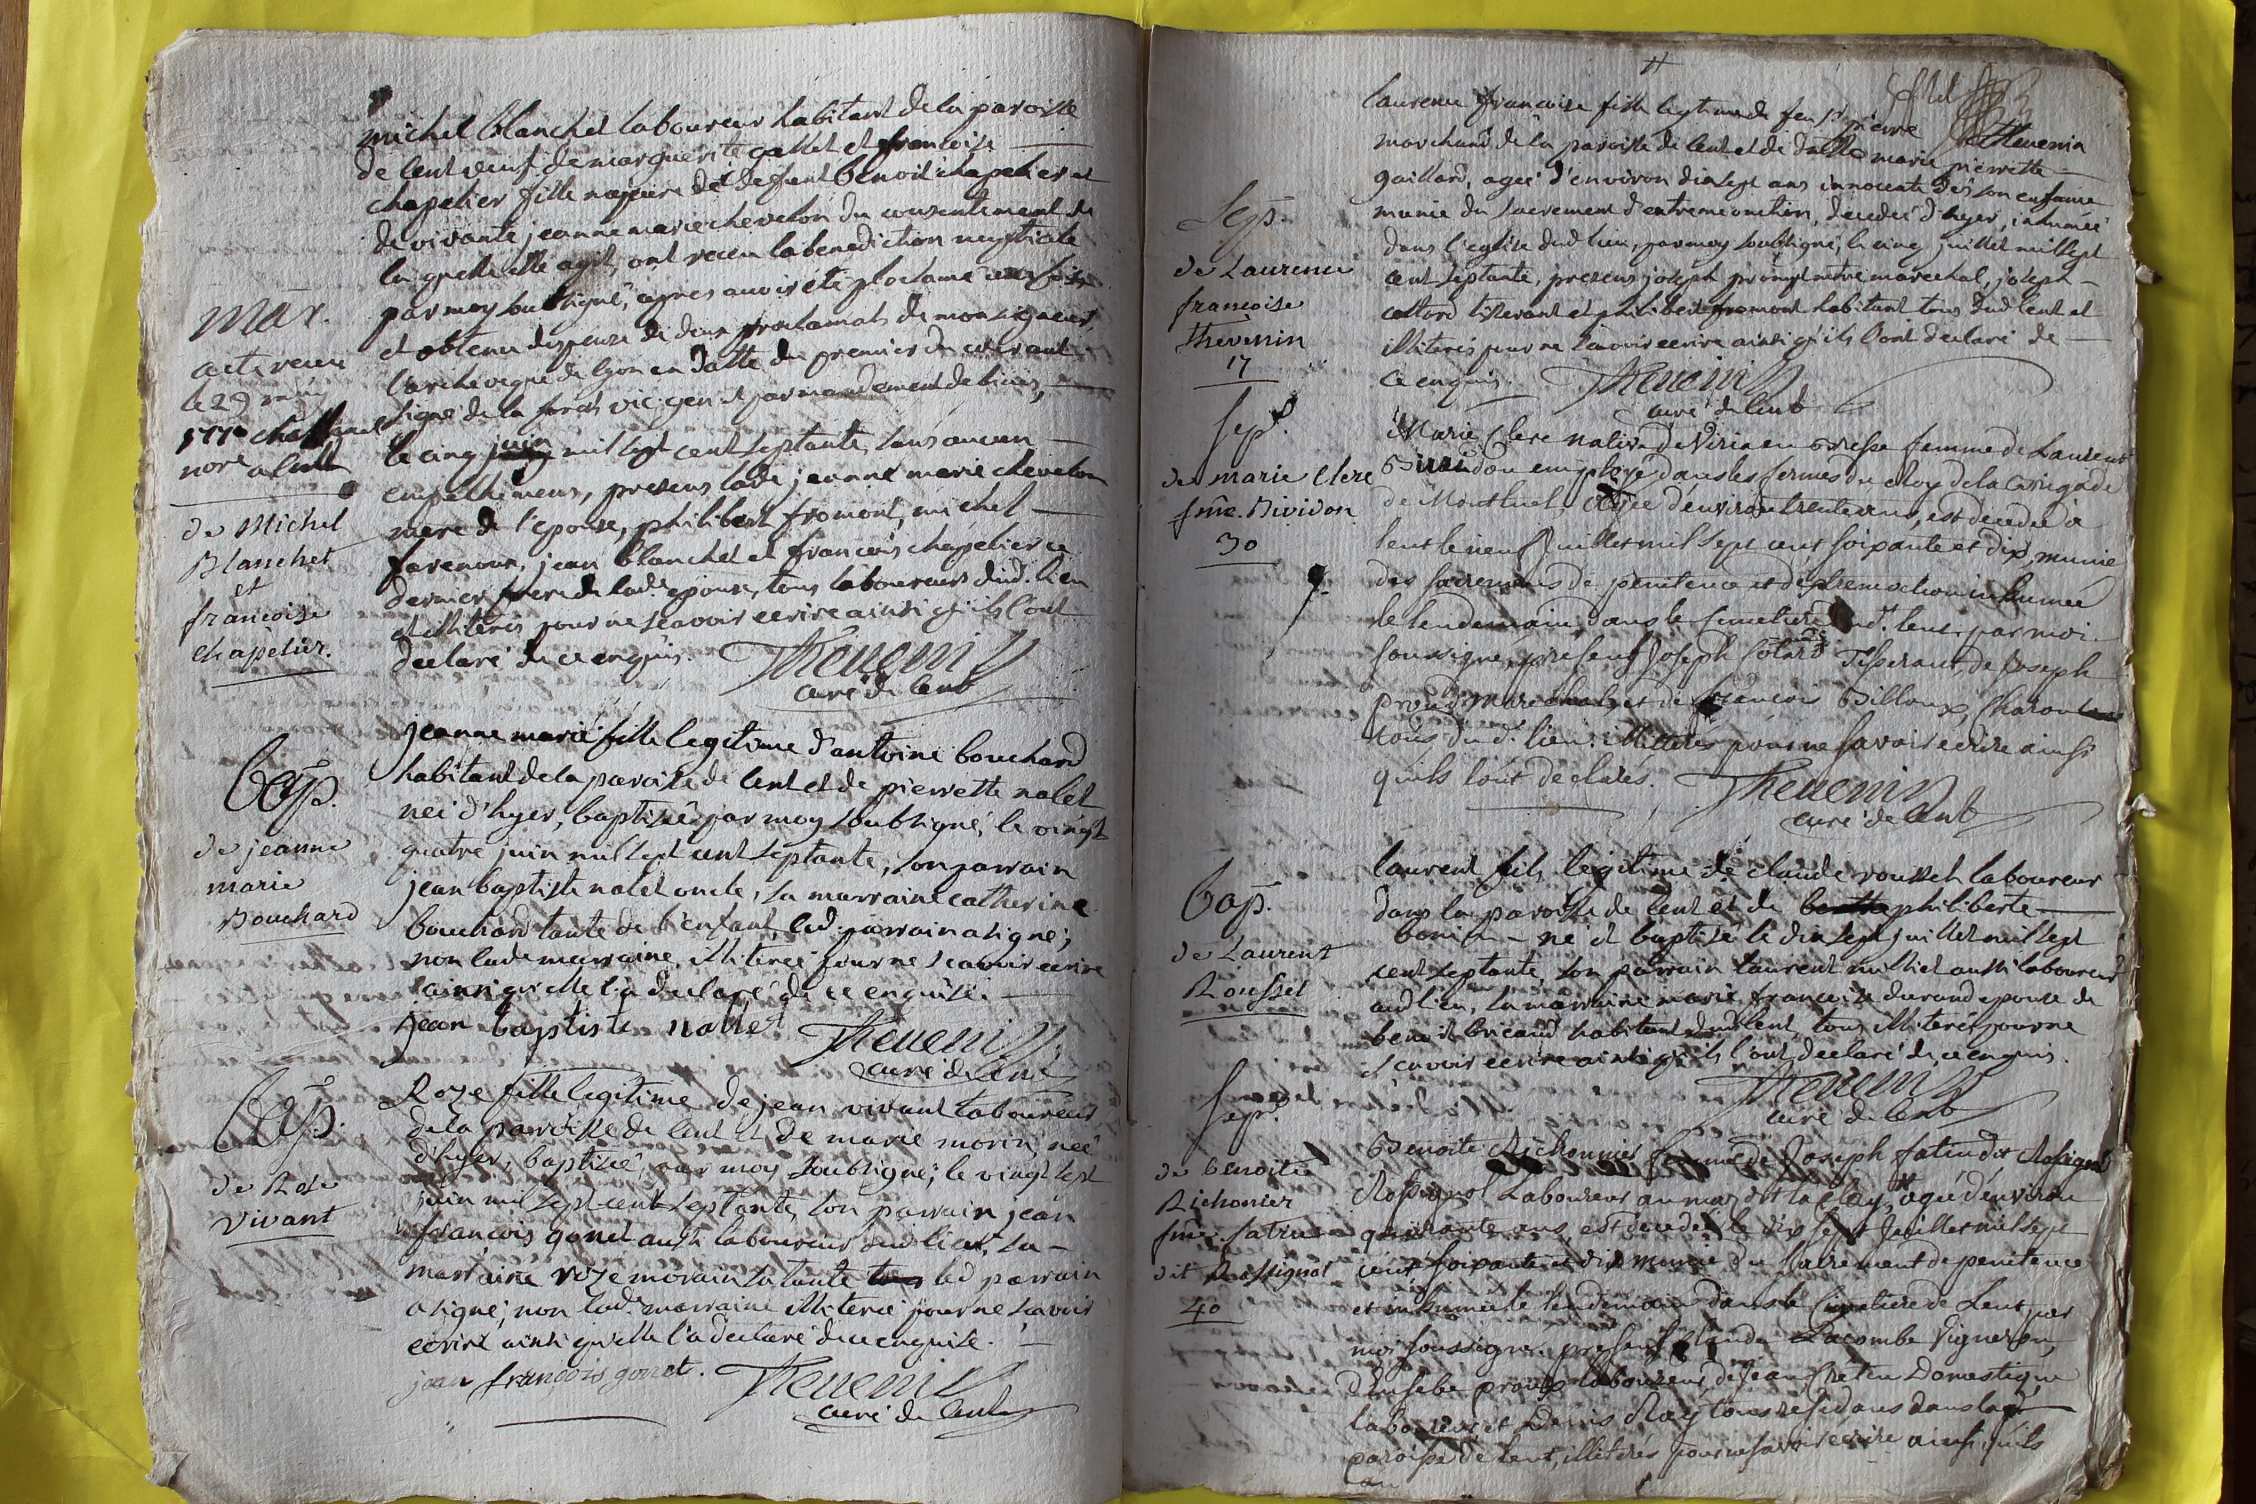 michel blanchet laboureur habitant de la paroisse
de lent veuf de marguerite gallet et francoise
chapelier fille majeure de deffunt benoit chapelier et
de vivante jeanne marie chevelon du consentement de
laquelle elle agit, ont receu la benediction nuptiale
par moy soubsigné, apres avoir été proclamé
et obtenu dispense de deux proclamats de monseigneur
l'archeveque de lyon en datte du premier du courant
signé de la forest vic. gen. et par mandement
le cinq juin mil sept cent septante, sans aucun
empechemens, presens lade jeanne marie chevelon
mere de l'epouse, philibert fromont, michel
favenoux, jean blanchet et francois chapelier ce
dernier frere de lade epouse, tous laboureurs dud. lieu
et illiterés pour ne scavoir ecrire ainsi qu'ils l'ont
declaré de ce enquis. Thevenin
curé de lent
Mar.
acte receu
le 29 may
1770
nore a lent
de Michel
Blanchet
et
francoise
chapelier.
jeanne marie fille legitime d'antoine bouchard
habitant de la paroisse de lent et de pierrette nalet
née d'hyer, baptisée par moy soubsigné, le vingt
quatre juin mil sept cent septante, son parrain
jean baptiste nalet oncle, sa marraine catherine
bouchard tante de l'enfant, led. parrain a signé;
non lade marraine illiterée pour ne scavoir ecrire
ainsi qu'elle l'a declaré de ce enquise.
jean baptiste nallet Thevenin
curé de lent
Bap.
de jeanne
marie
Bouchard
Roze fille legitime de jean vivant laboureur
de la paroisse de lent et de marie morin, née
d'hyer, baptizée par moy soubsigné, le vingt sept
juin mil sept cent septante, son parrain jean
françois gonet aussi laboureur dud. lieu, sa
marraine roze morain sa tante led parrain
a signé, non lade marraine illiterée pour ne scavoir
ecrire ainsi qu'elle l'a declaré de ce enquise.
jean françois gonet. Thevenin
curé de lent
Bap.
de Rose
vivant
laurence francoise fille legitime de feu sr pierre Thevenin
marchand de la paroisse de lent et de dlle marie pierrette
gaillard, agée d'environ dixsept ans innocente dès son enfance
munie du sacrement d'extreme onction, decedée d'hyer, inhumée
dans l'eglise dud lieu, par moy soubsigné, le cinq juillet mil sept
cent septante, presens joseph maitre marechal, joseph
collard tisserant et philibert fromont habitant tous dud lent et
illiterés pour ne scavoir ecrire ainsi qu'ils l'ont declaré de
ce enquis. Thevenin
curé de lent
Sep.
de Laurence
francoise
Thevenin
17
Marie Clere native de Viria en Bresse femme de Laurent
employé dans les fermes du Roy de la Brigade
de Montluel, agée d'environ trente ans, est decedée à
lent le neuf Juillet mil sept cent soixante et dix, munie
des sacremens de penitence et d'extremeonction inhumée
le lendemain dans le Cimetiere dud. lent par moi
soussigné, present Joseph Colard Tisserant, de Joseph
marechal, et de francois Billoux, Charon
tous du d. lieu. Illiterés pour ne savoir ecrire ainsi
quils l'ont declarés. Thevenin
curé de lent
Sep.
de marie Clere
fme. Bividon
30
laurent fils legitime de claude rousset laboureur
dans la paroisse de lent et de philiberte
bonin né et baptisé le dix sept juillet mil sept
cent septante, son parrain laurent milliet aussi laboureur
aud lieu, sa marraine marie francoise durand epouse de
benoit bricaud habitant dud lent, tous illiterés pour ne
scavoir ecrire ainsi qu'ils l'ont declaré de ce enquis.
Thevenin
curé de lent
Bap.
de Laurent
Rousset
Benoite Richonnier femme de Joseph fatin dit Rossignol
Rossignol Laboureur au maz dit agée d'environ
quarante ans, est decedée le dix sept Juillet mil sept
cent soixante et dix munie du sacrement de penitence
et inhumée le lendemain dans le Cimetiere de Lent par
moi soussigné. present Claude Lacombe Vigneron,
laboureur de Jean Chétin Domestique
laboureur, et Denis Rey tous residans dans lad.
paroisse de lent, illiterés pour ne savoir ecrire ainsi quils
Sep.
de benoite
Richonier
fme fatin
dit Rossignol
40